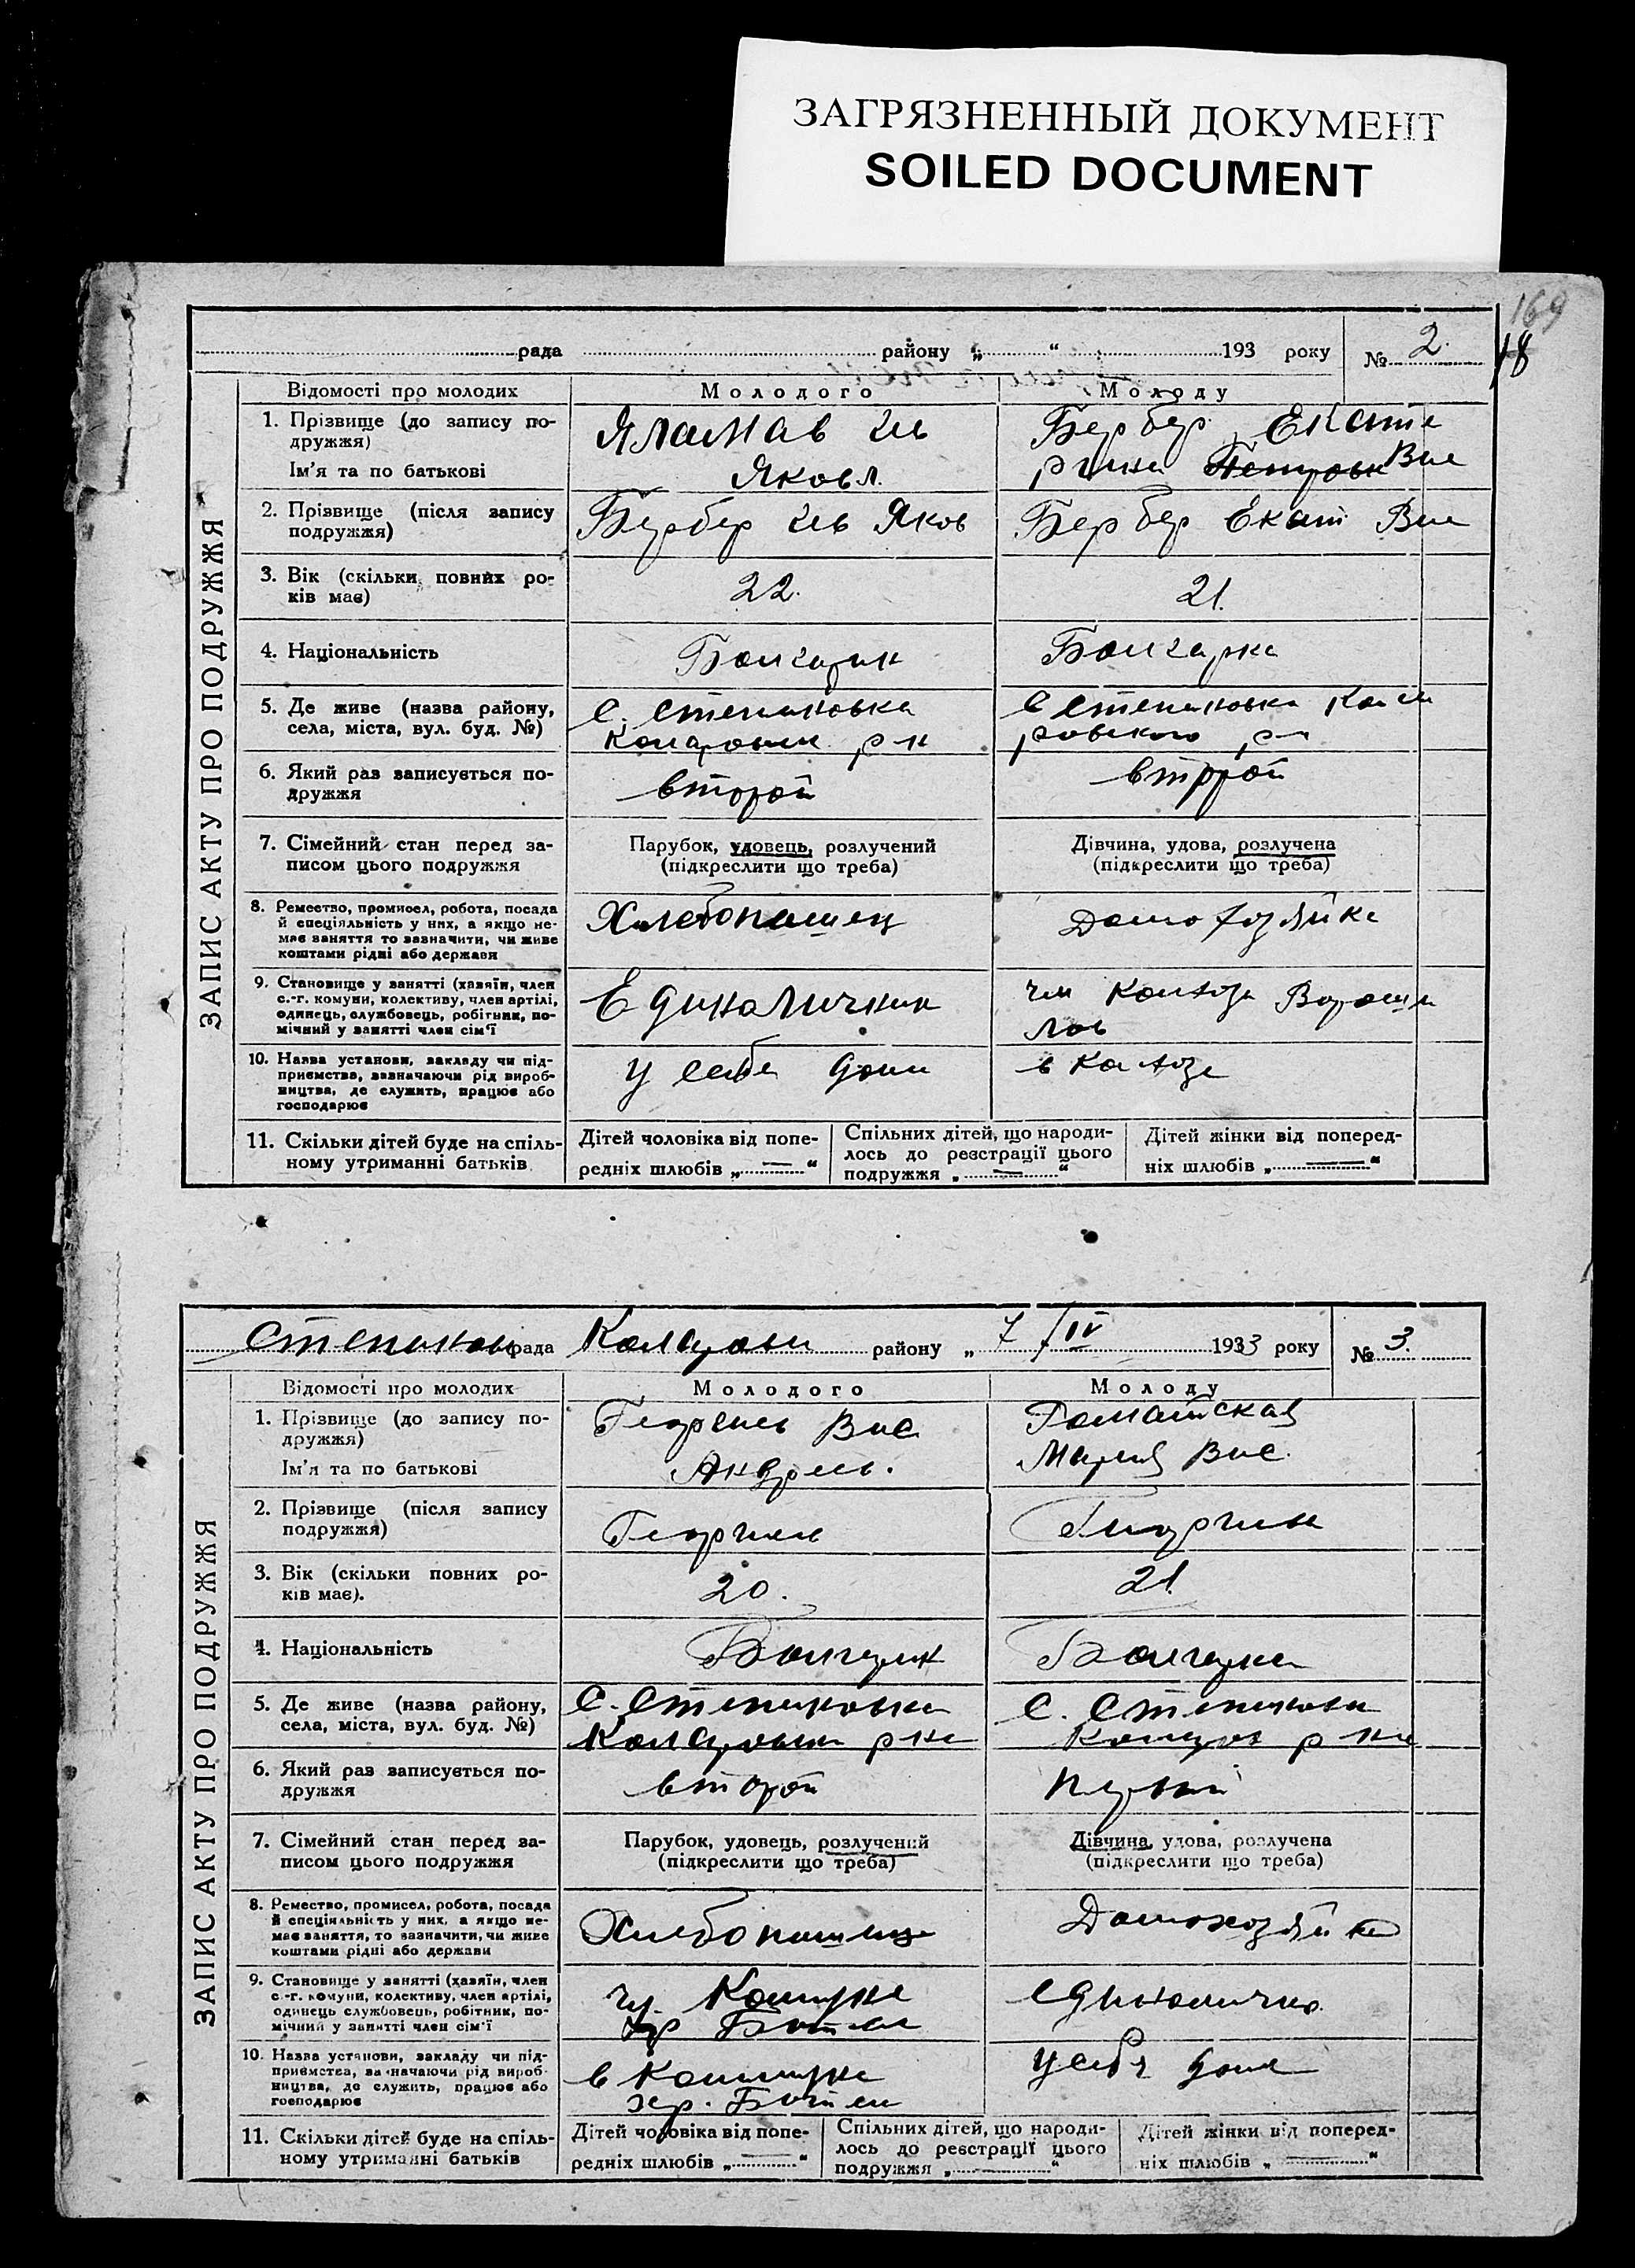 ЗАГРЯЗНЕННЫЙ ДОКУМЕНТ
SOILED DOCUMENT
169
18
рада району „ “ 193 року № 2
ЗАПИС АКТУ ПРО ПОДРУЖЖЯ
Відомості про молодих Молодого Молоду
1. Прізвище (до запису по-
дружжя)
Ім'я та по батькові
Яламов
Яковл.
Бербер Екате
рина Петровн Вас
2. Прізвище (після запису
подружжя)
Бербер Яков
Бербер Екат Вас
3. Вік (скільки повних ро-
ків має)
22.
21.
4. Національність
Болгарин
Болгарка
5. Де живе (назва району,
села, міста, вул. буд. №)
С. Степановка
Коларовск р н
С Степановка Кола
ровского р-н
6. Який раз записується по-
дружжя
второй
второй
7. Сімейний стан перед за-
писом цього подружжя
Парубок, удовець, розлучений
(підкреслити що треба)
Дівчина, удова, розлучена
(підкреслити що треба)
8. Ремество, промисел, робота, посада
й спеціяльність у них, а якщо не-
має заняття то зазначити, чи живе
коштами рідні або держави
Хлебопашец
Домохозяйка
9. Становище у занятті (хазяїн, член
с.-г. комуни, колективу, член артілі,
одинець, службовець, робітник, по-
мічний у занятті член сім'ї
Единоличник
чл Колхоза Вороши
лов
10. Назва установи, закладу чи під-
приємства, зазначаючи рід вироб-
ництва, де служить, працює або
господарює
у себя дома
в Колхозе
11. Скільки дітей буде на спіль-
ному утриманні батьків
Дітей чоловіка від попе-
редніх шлюбів „ — “
Спільних дітей, що народи-
лось до реєстрації цього
подружжя „ — “
Дітей жінки від поперед-
ніх шлюбів „ — “
Степанов рада Коларовск району „ 7/IV 1933 року № 3.
ЗАПИС АКТУ ПРО ПОДРУЖЖЯ
Відомості про молодих Молодого Молоду
1. Прізвище (до запису по-
дружжя)
Ім'я та по батькові
Вас
Андреев.
Мария Вас.
2. Прізвище (після запису
подружжя)
3. Вік (скільки повних ро-
ків має).
20.
21.
4. Національність
Болгарин
Болгарка
5. Де живе (назва району,
села, міста, вул. буд. №)
С. Степановка
Коларовск р на
С. Степановка
Коларов р на
6. Який раз записується по-
дружжя
второй
первый
7. Сімейний стан перед за-
писом цього подружжя
Парубок, удовець, розлучений
(підкреслити що треба)
Дівчина, удова, розлучена
(підкреслити що треба)
8. Ремество, промисел, робота, посада
й спеціяльність у них, а якщо не-
має заняття, то зазначити, чи живе
коштами рідні або держави
Хлебопашец
Домохозяйка
9. Становище у занятті (хазяїн, член
с.-г. комуни, колективу, член артілі,
одинець службовець, робітник, по-
мічний у занятті член сім'ї
чл. Коммуны
единолична
10. Назва установи, закладу чи під-
приємства, зазначаючи рід вироб-
ництва, де служить, працює або
господарює
в Коммуне
у себя дома
11. Скільки дітей буде на спіль-
ному утриманні батьків
Дітей чоловіка від попе-
редніх шлюбів „ — “
Спільних дітей, що народи-
лось до реєстрації цього
подружжя „ — “
Дітей жінки від поперед-
ніх шлюбів „ — “